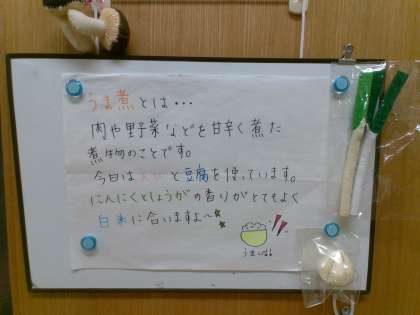 うま煮とは・・・
肉や野菜などを甘辛く煮た
煮物のことです。
今日は と豆腐を使っています。
にんにくとしょうがの香りがとてもよく
白米に合いますよ〜